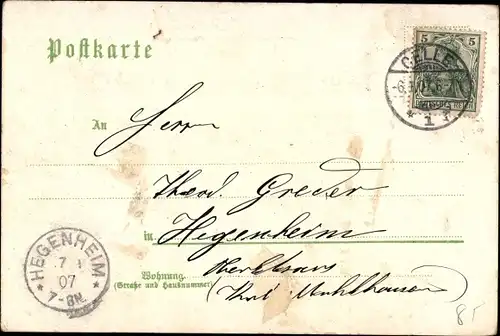 Postkarte
5 5
CELLE
* 1 *
An
Herrn
Theod. Greder
in Hegenheim
Wohnung
(Straße und Hausnummer)
Oberelsass
(Kreis Mühlhausen)
* HEGENHEIM *
7 1
07
7-8N.
85